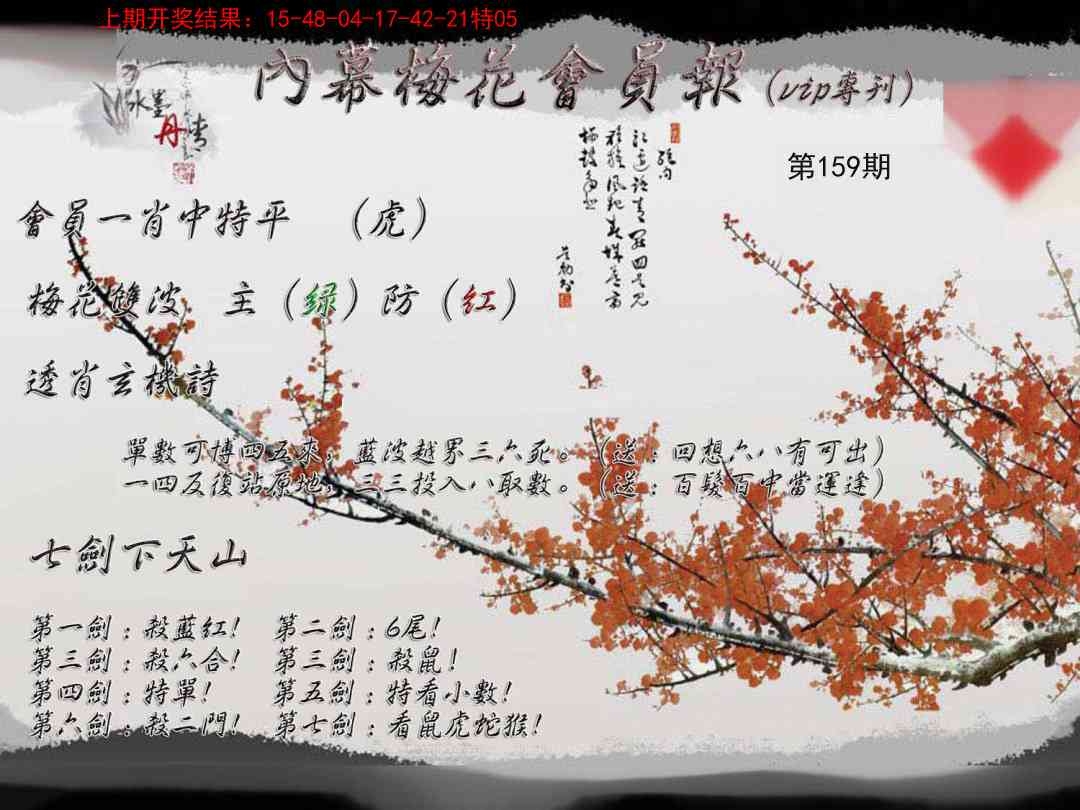 上期开奖结果：15-48-04-17-42-21特05
內幕梅花會員報（vip專刊）
水墨
丹青
第159期
會員一肖中特平　（虎）
梅花雙波　主（绿）防（红）
透肖玄機詩
單數可博四五來，藍波越界三六死。（送：回想六八有可出）
一四反復站原地，三三投入八取數。（送：百髮百中當運逢）
七劍下天山
第一劍：殺藍紅！　第二劍：6尾！
第三劍：殺六合！　第三劍：殺鼠！
第四劍：特單！　第五劍：特看小數！
第六劍：殺二門！　第七劍：看鼠虎蛇猴！